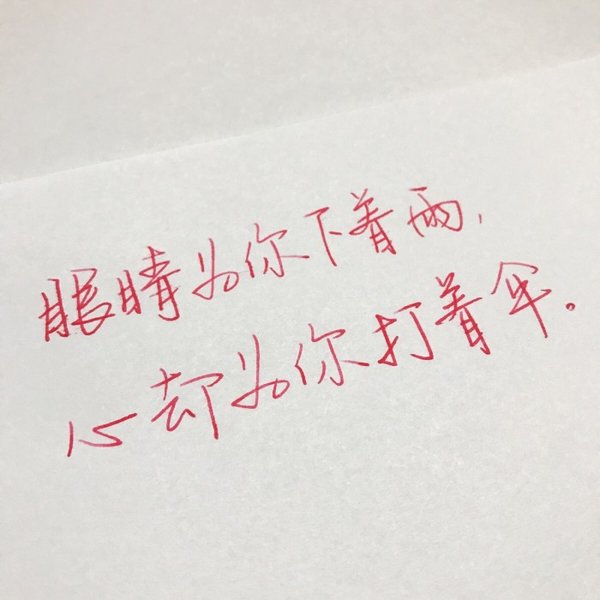 眼睛为你下着雨，
心却为你打着伞。